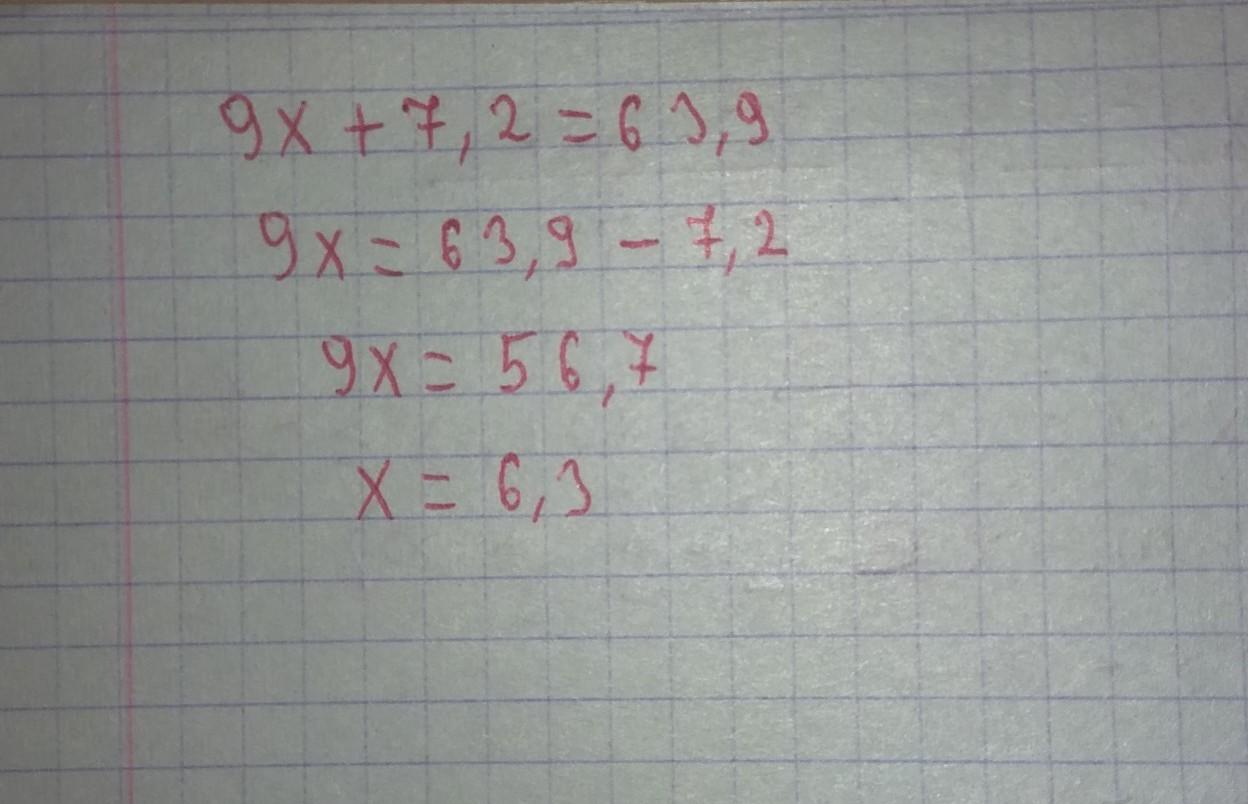 9x + 7,2 = 63,9
9x = 63,9 - 7,2
9x = 56,7
x = 6,3